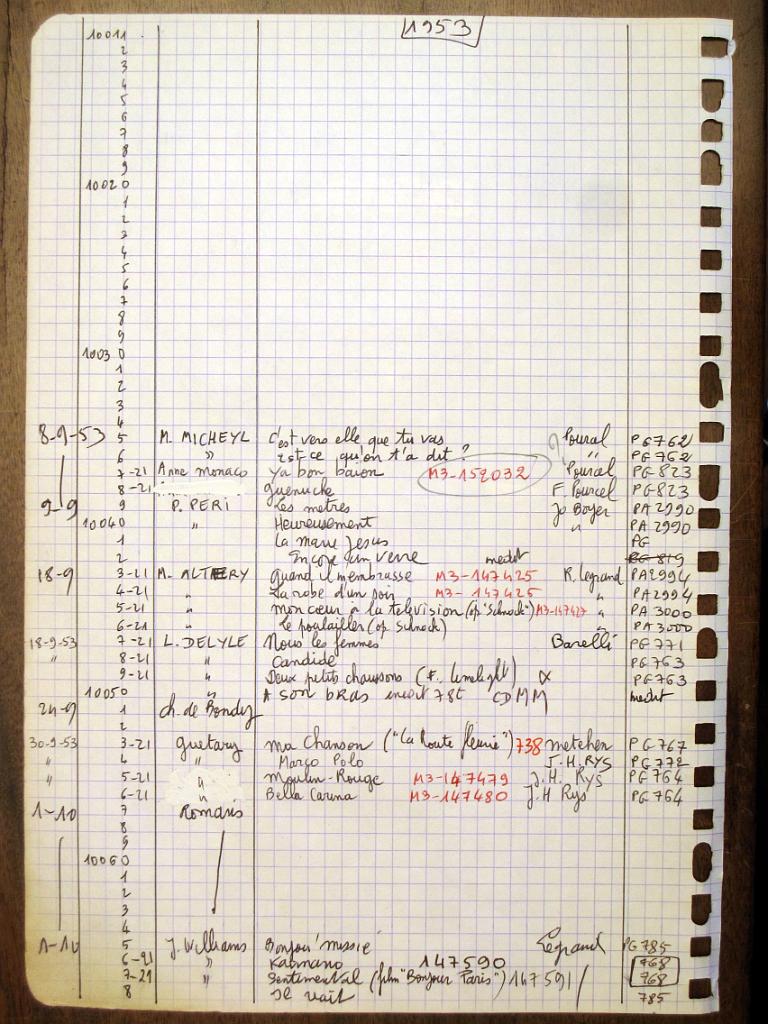 1953
10011
2
3
4
5
6
7
8
9
10020
1
2
3
4
5
6
7
8
9
10030
1
2
3
4
8-9-53 5 M. MICHEYL c'est vers elle que tu vas Pourcel PG762
6 " Est-ce qu'on t'a dit? " PG762
7-21 Anne Monaco Ya bon baion M3-152032 Pourcel PG823
8-21 guenuche F. Pourcel PG823
9-9 9 P. PERI Les metres Jo Boyer PA2990
10040 " Heureusement " PA2990
1 La marie Jesus PG
2 Encore un verre inedit PG819
18-9 3-21 M. ALTERY Quand il m'embrasse M3-147425 R. Legrand PA2994
4-21 " La robe d'un soir M3-147425 " PA2994
5-21 " mon cœur à la télévision (op "Schnock") M3-147427 " PA3000
6-21 " le poulailler (op Schnock) " PA3000
18-9-53 7-21 L. DELYLE Nous les femmes Barelli PG771
" 8-21 " Candide PG763
9-21 " Deux petits chaussons (F. limelight) PG763
10050 " A SON BRAS inedit 78t CDMM inedit
24-9 1 ch. de Bondy
2
30-9-53 3-21 guetary ma Chanson ("La Route fleurie") 738 metehen PG767
" 4 " Marco Polo J.H. RYS PG772
" 5-21 " Moulin-Rouge M3-147479 J.H. Rys PG764
6-21 " Bella Carina M3-147480 J.H Rys PG764
1-10 7 Romans
8
9
10060
1
2
3
4
1-10 5 J. Williams Bonjour missié Legrand PG785
6-21 " 147590 768
7-21 " Sentimental (film "Bonjour Paris") 147591 768
8 Il vait 785